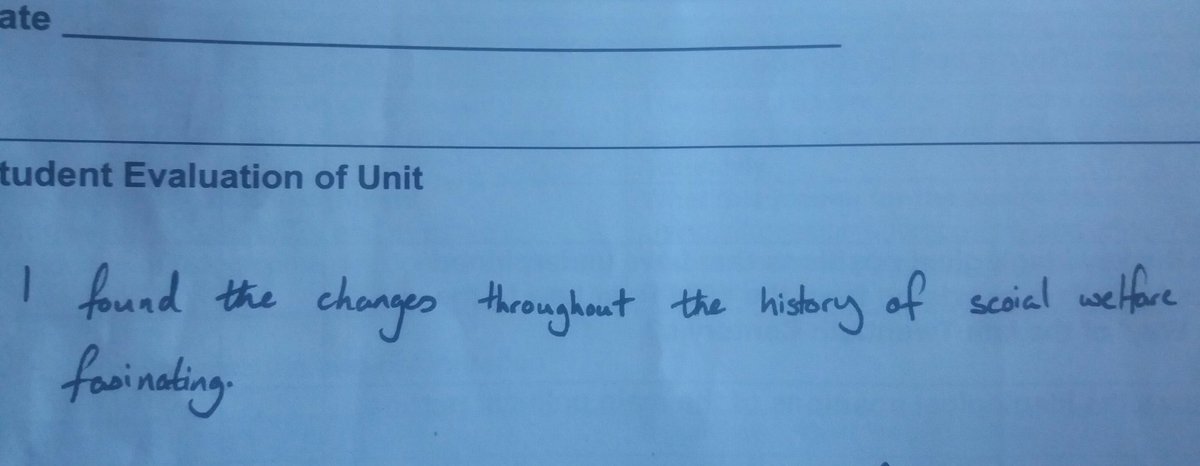 ate
tudent Evaluation of Unit
I found the changes throughout the history of scoial welfare
fasinating.